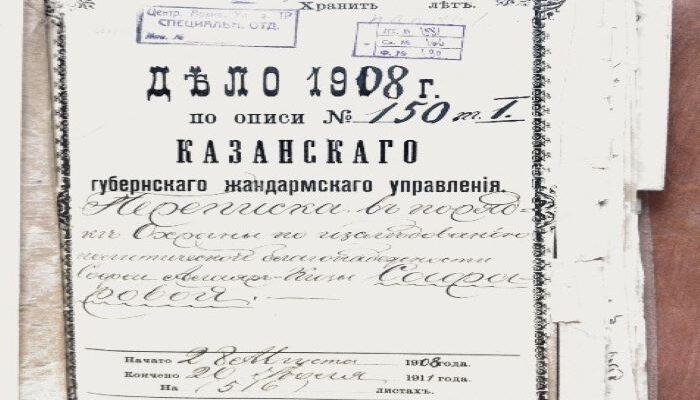 Хранить лѣтъ.
Центр. Архив. Упр. ТР
СПЕЦИАЛЬН. ОТД.
ДѢЛО 1908 г.
по описи № 150 т. I.
КАЗАНСКАГО
губернскаго жандармскаго управленія.
Переписка въ поряд-
кѣ Охраны по изслѣдованію
политической благонадежности
Софіи
Начато 28 Августа 1908 года.
Кончено 20 1911 года.
На (56) листахъ.